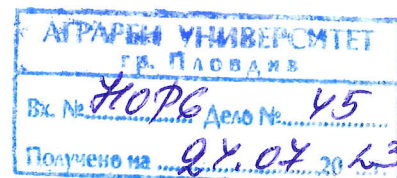 АГРАРЕН УНИВЕРСИТЕТ
гр. Пловдив
Вх. № НОР6 Дело № 45
Получено на 24.07 2023